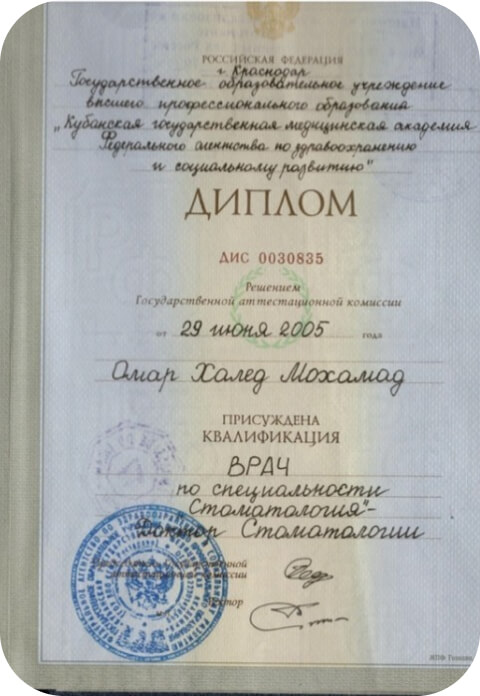 РОССИЙСКАЯ ФЕДЕРАЦИЯ
г. Краснодар
Государственное образовательное учреждение
высшего профессионального образования
„Кубанская государственная медицинская академия
Федерального агентства по здравоохранению
и социальному развитию"
ДИПЛОМ
ДИС 0030835
Решением
Государственной аттестационной комиссии
от 29 июня 2005 года
Омар Халед Мохамад
ПРИСУЖДЕНА
КВАЛИФИКАЦИЯ
ВРАЧ
по специальности
„Стоматология"-
Доктор Стоматологии